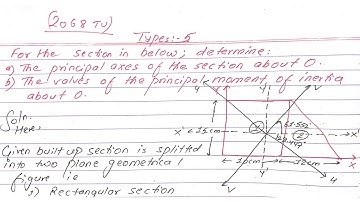 (2068 TU)
Types:-5
For the section in below; determine:
a) The principal axes of the section about O.
b) The values of the principal moment of inertia
about O.
Soln.
Here,
Given built up section is splitted
into two plane geometrical
figure ie
1) Rectangular section
Y
Y'
V
X'
15cm
X
12cm
Y'
V
U